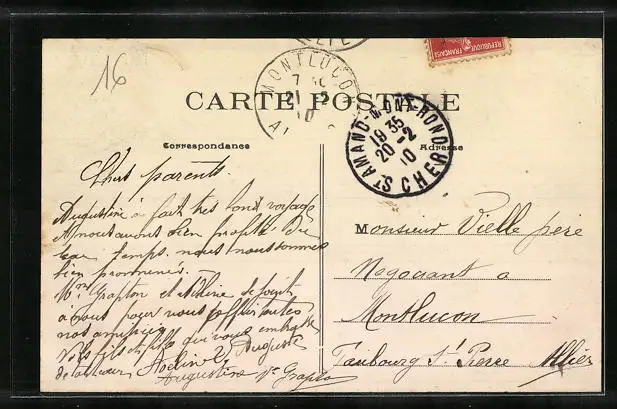 16
MONTLUÇON
7
21-2
10
REPUBLIQUE FRANÇAISE
CARTE POSTALE
ST AMAND-MONT-ROND
19 35
20-2
10
CHER
Correspondance
Adresse
Chers parents
Augustine a fait très bon voyage
Et nous avons bien profité du
beau temps. nous nous sommes
bien promenés.
Mme Grapton et
à vous pour nous
nos amitiés
Vos fils et fille qui vous embrasse
de Auguste
Augustine Vve Grapton
Monsieur Vielle père
Negociant a
Montlucon
Faubourg St Pierre Allier